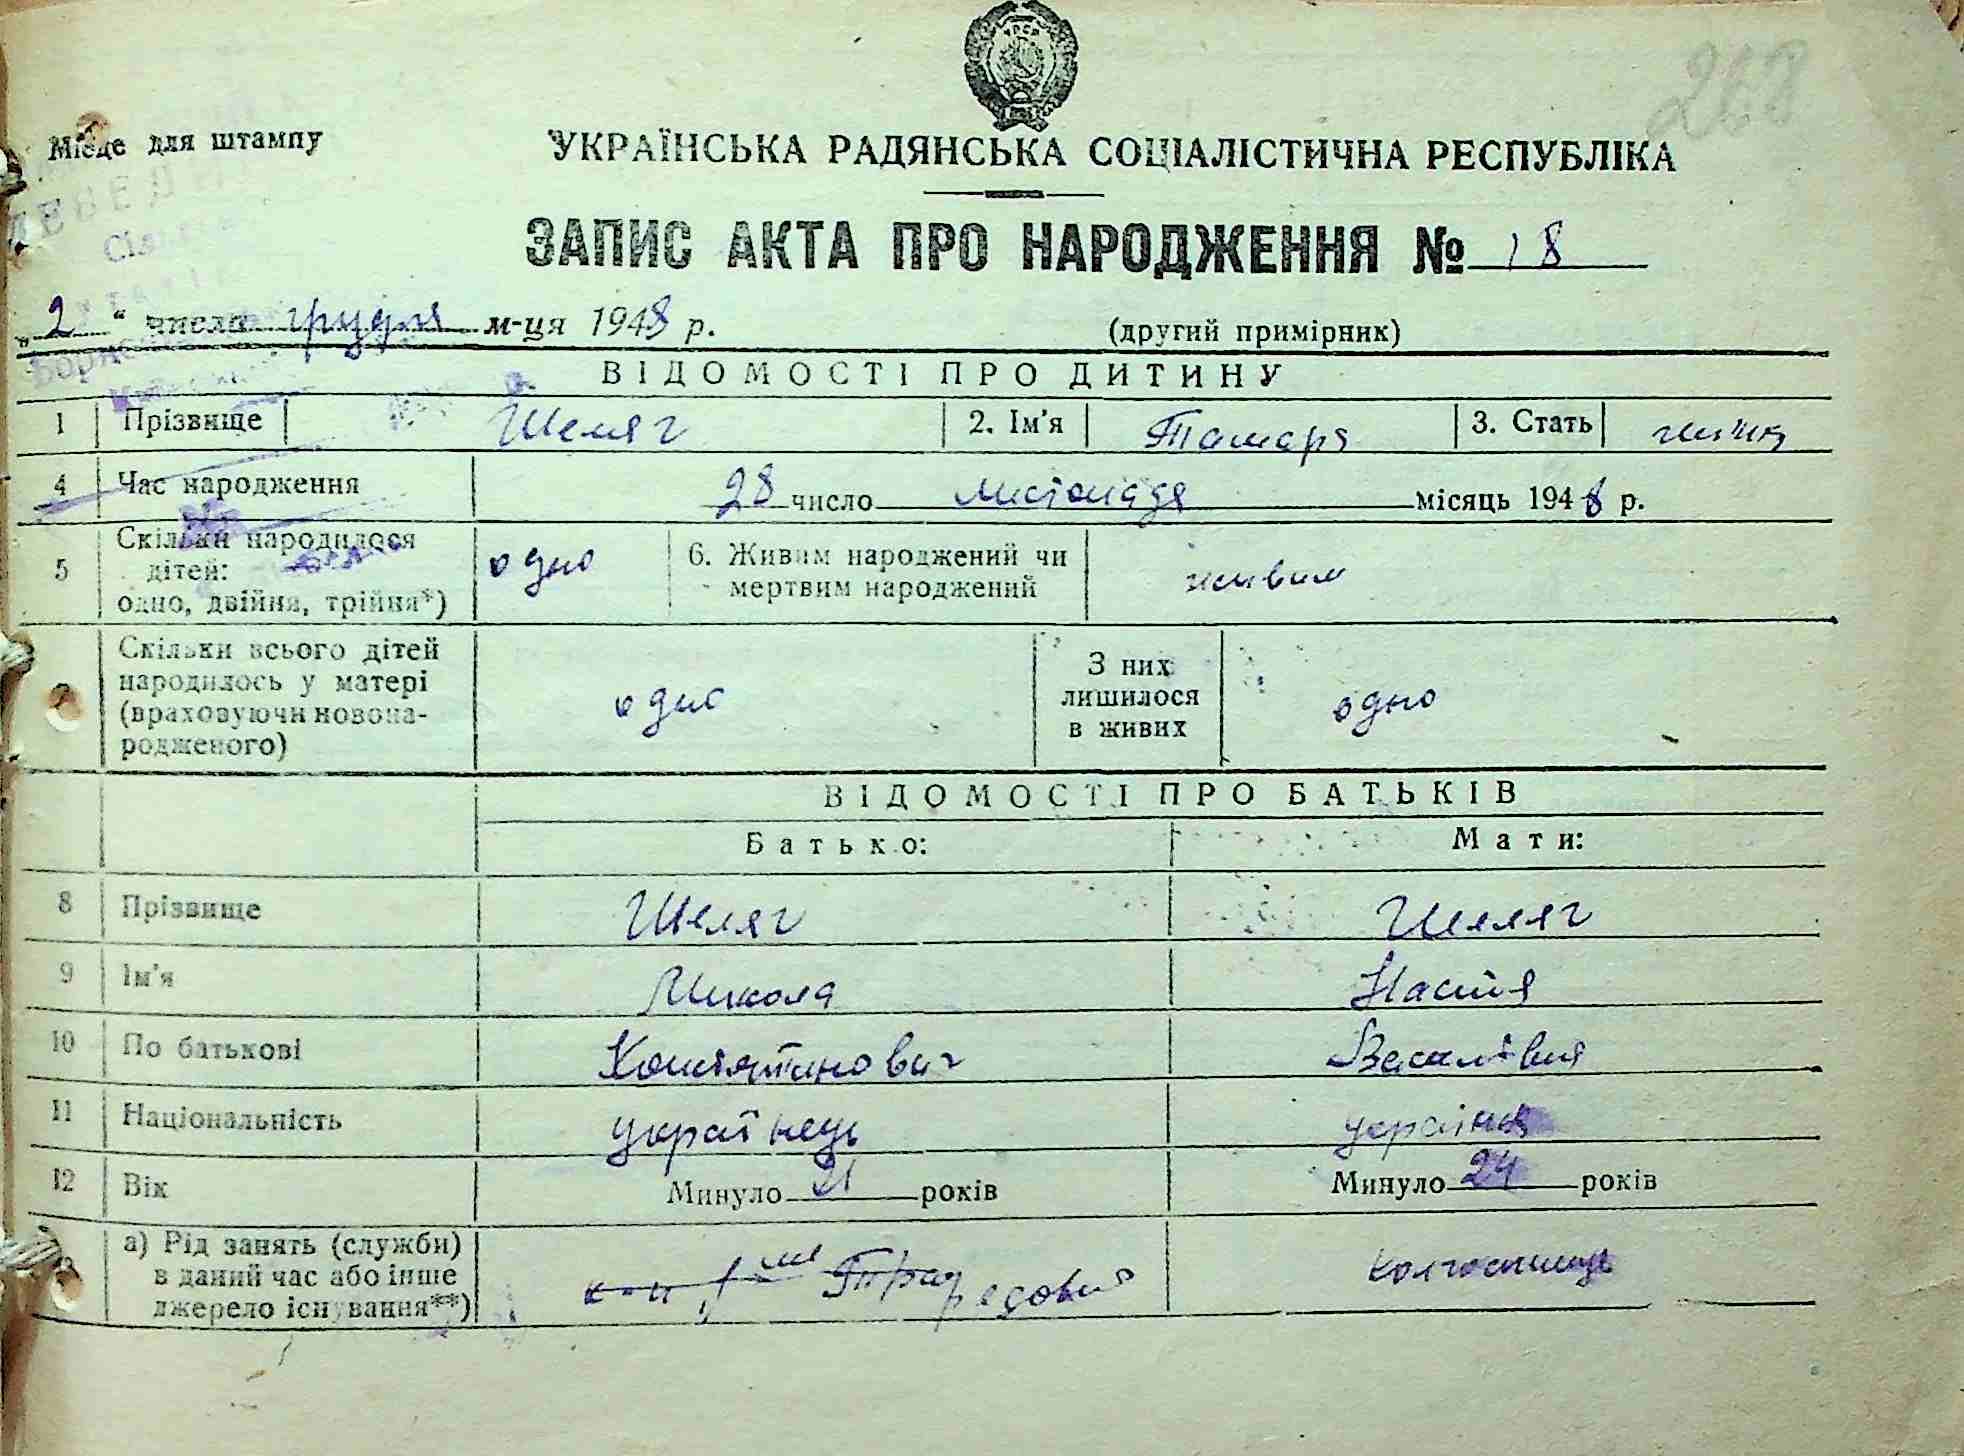 268
УРСР
Місце для штампу
УКРАЇНСЬКА РАДЯНСЬКА СОЦІАЛІСТИЧНА РЕСПУБЛІКА
ЗАПИС АКТА ПРО НАРОДЖЕННЯ № 18
„2“ число грудня м-ця 1948 р.
(другий примірник)
ВІДОМОСТІ ПРО ДИТИНУ
1 Прізвище Шеляг 2. Ім'я Тамара 3. Стать жінка
4 Час народження 28 число листопада місяць 1948 р.
5 Скільки народилося дітей: одно, двійня, трійня*) одно 6. Живим народжений чи мертвим народжений живим
7 Скільки всього дітей народилось у матері (враховуючи новонародженого) одно З них лишилося в живих одно
ВІДОМОСТІ ПРО БАТЬКІВ
Батько: Мати:
8 Прізвище Шеляг Шеляг
9 Ім'я Микола Настя
10 По батькові Констятинович Василівня
11 Національність українець українка
12 Вік Минуло 21 років Минуло 24 років
а) Рід занять (служби) в даний час або інше джерело існування**) рядовий колгоспниця